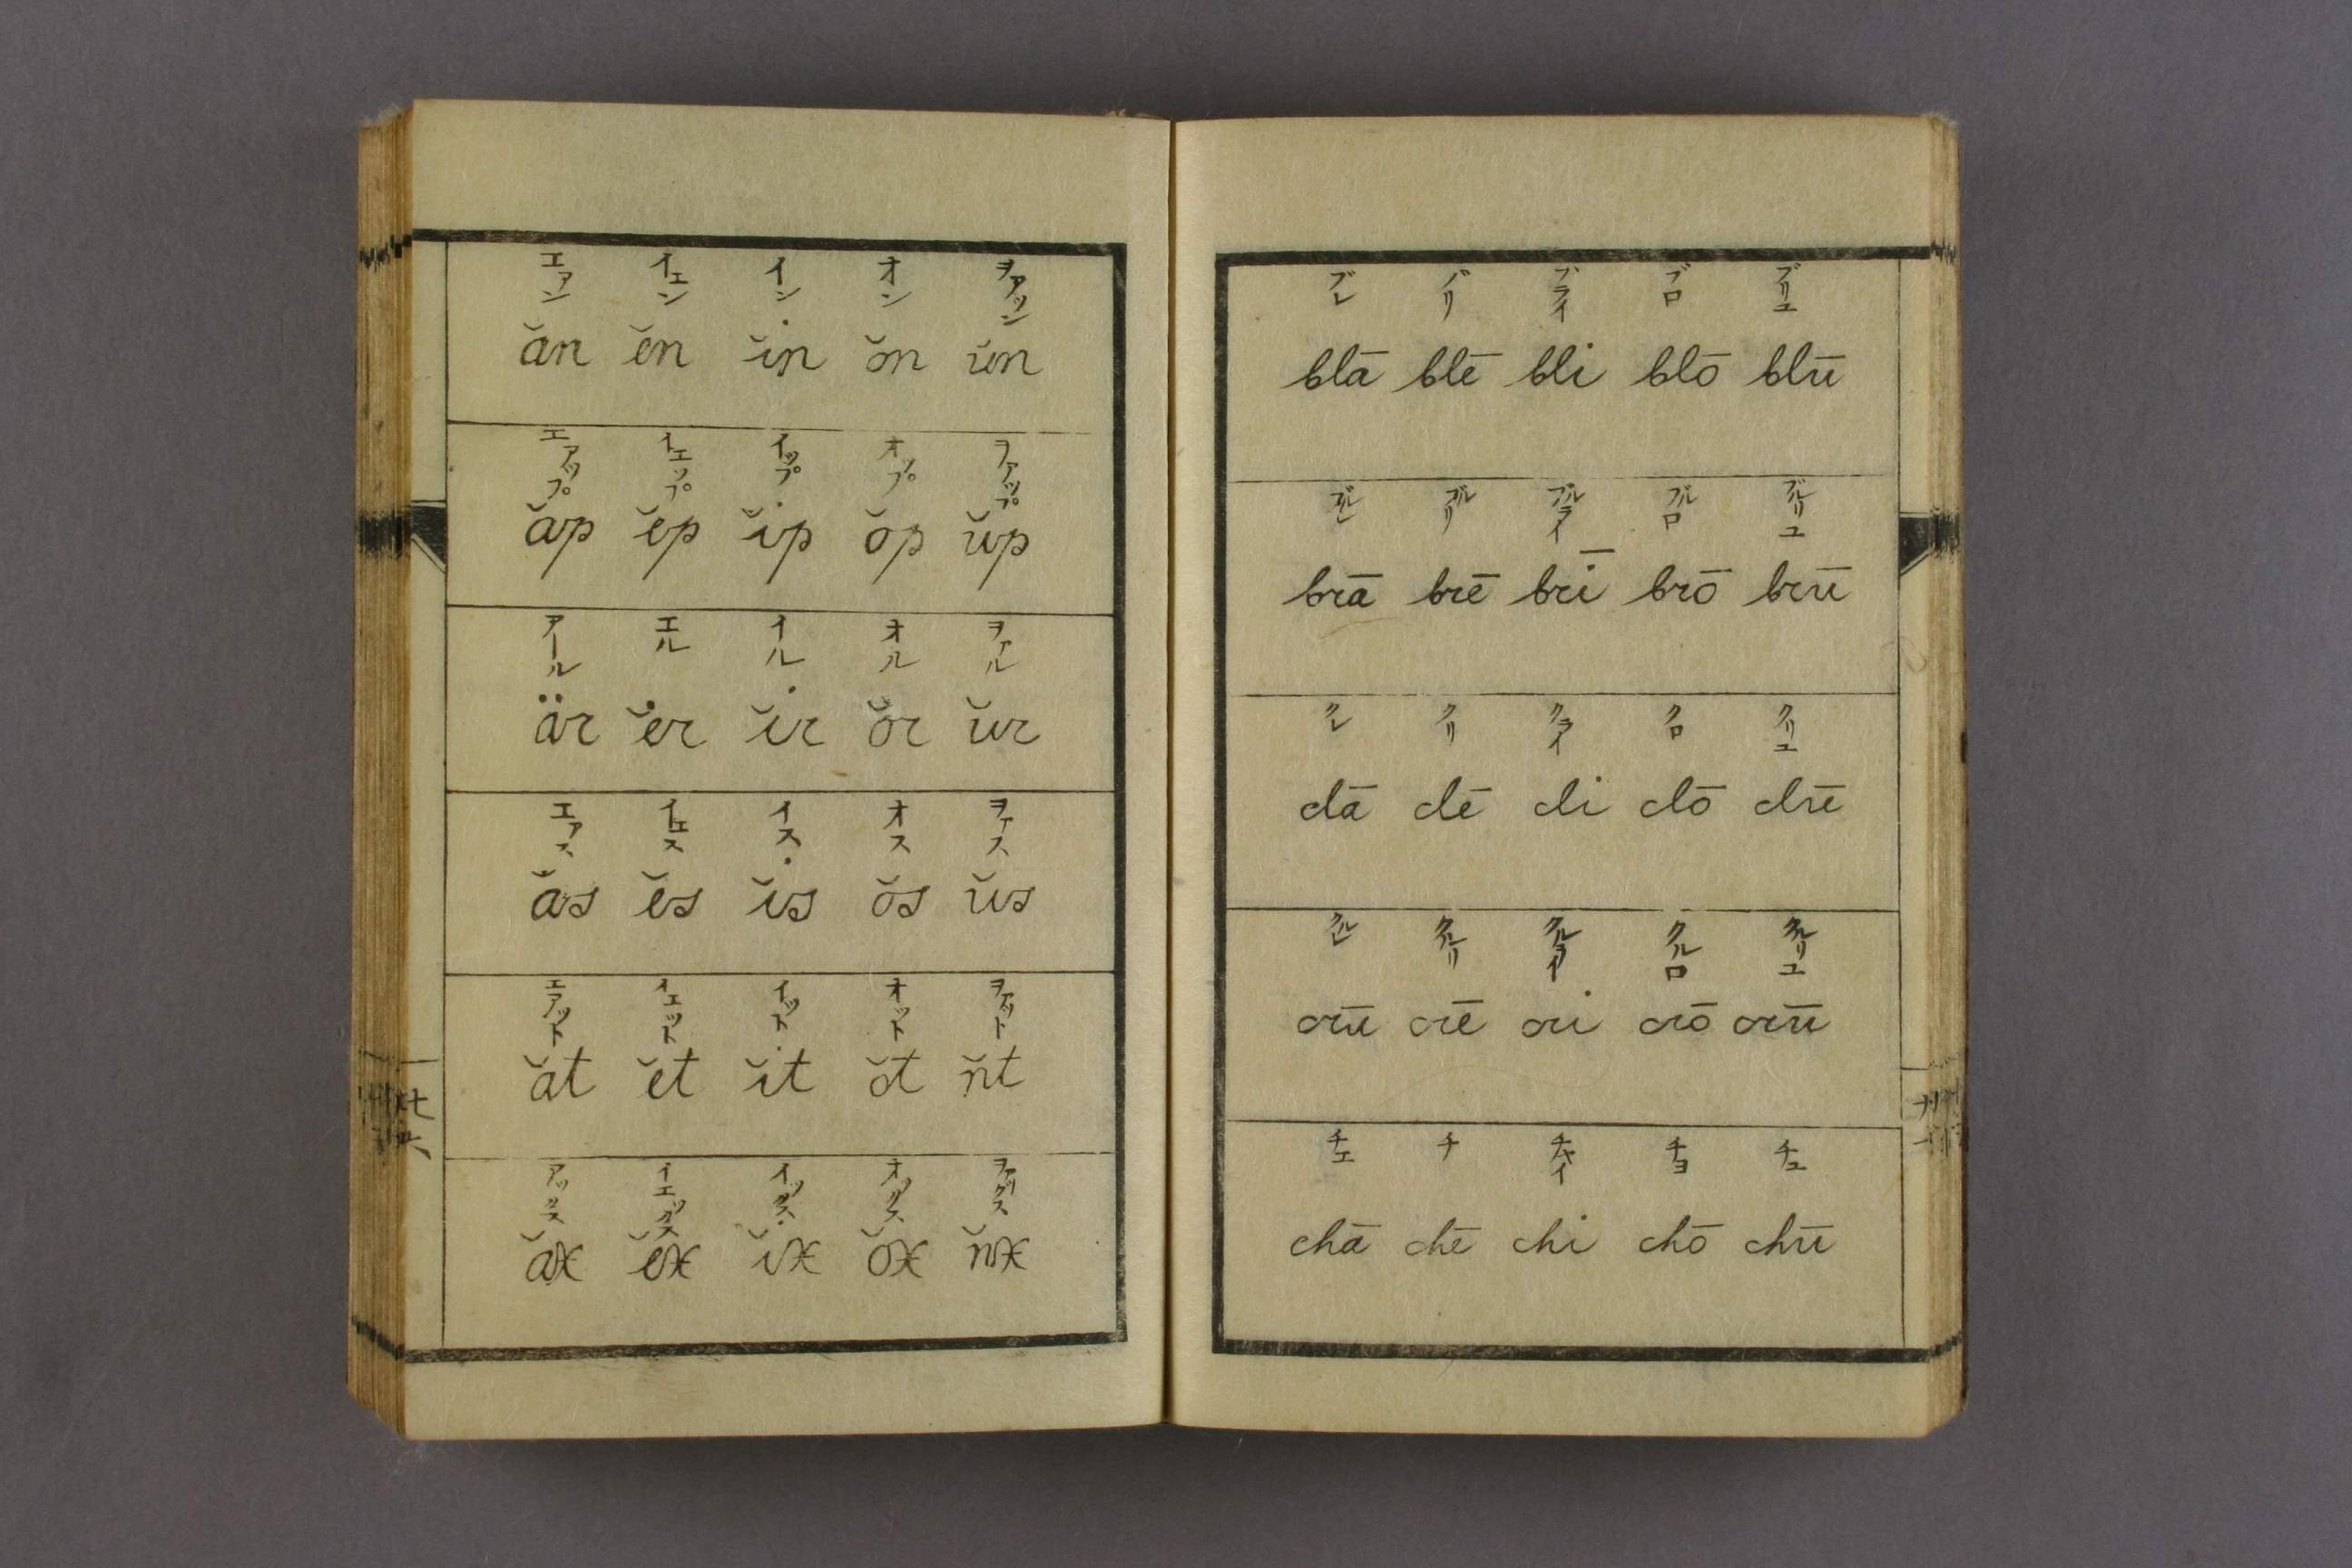 エアン イエン イン オン ヲアッン
ăn ĕn ĭn ŏn ŭn
エアップ イエップ イップ オップ ヲアップ
ăp ĕp ĭp ŏp ŭp
アール エル イール オル ヲアル
är ĕr ĭr ŏr ŭr
エアス イエス イス オス ヲアス
ăs ĕs ĭs ŏs ŭs
エアット イエット イット オット ヲアット
ăt ĕt ĭt ŏt n̆t
アックス イエックス イックス オックス ヲアックス
ăx ĕx ĭx ŏx n̆x
ブレ ブリ ブライ ブロ ブリユ
blā blē bli blō blū
ブルレ ブルリ ブルライ ブルロ ブルリユ
brā brē brī brō brū
クレ クリ クライ クロ クリユ
clā clē cli clō clū
クルレ クルリ クルライ クルロ クルリユ
crū crē cri crō crū
チエ チ チヤイ チヨ チユ
chā chē chi chō chū